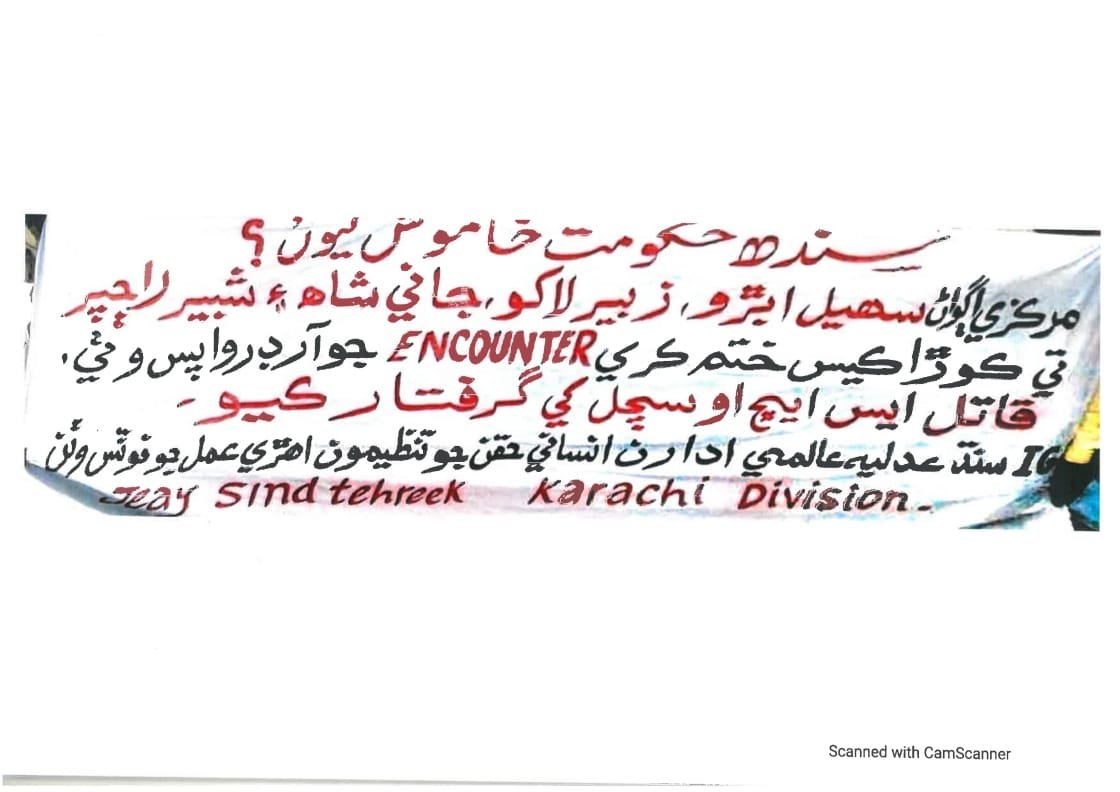 سندھ حکومت خاموش ڪيون؟
مرکزي اڳواڻ سھیل ابڙو، زبیر لاکو، جاني شاھ ۽ شبیر راڄپر
تي ڪوڙا ڪیس ختم ڪري ENCOUNTER جو آرڊر واپس وٺي،
قاتل ایس ایچ او سچل کي گرفتار ڪیو۔
IG سنڌ عدلیہ عالمي ادارن انساني حقن جو تنظیمون اھڙي عمل جو نوٽس وٺن
Jeay Sind tehreek Karachi Division.
Scanned with CamScanner